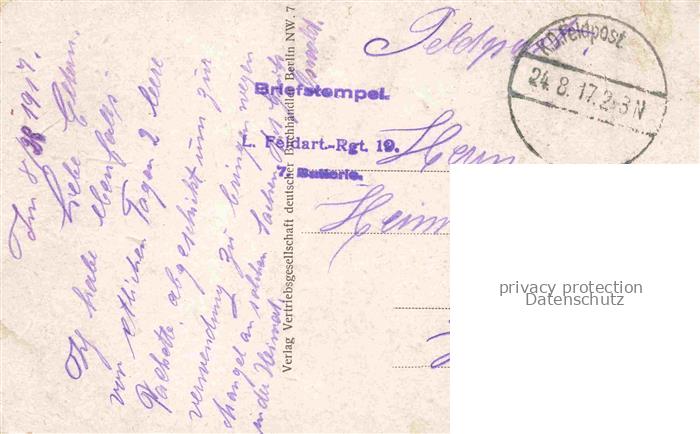 Im 8 1917.
Liebe Eltern.
Ich habe ebenfalls
von etlichen Tagen 2 leere
Pachette abgeschickt um zur
verwendung zu bringen wegen
mangel an solchen Sachen
in der Heimat.
Gruß Ewald.
Verlag Vertriebsgesellschaft deutscher Buchhändler Berlin NW. 7
Feldpost
K.D. Feldpost
24. 8. 17. 2-3 N
Briefstempel.
I. Feldart.-Rgt. 19.
7. Batterie.
Herrn
privacy protection
Datenschutz